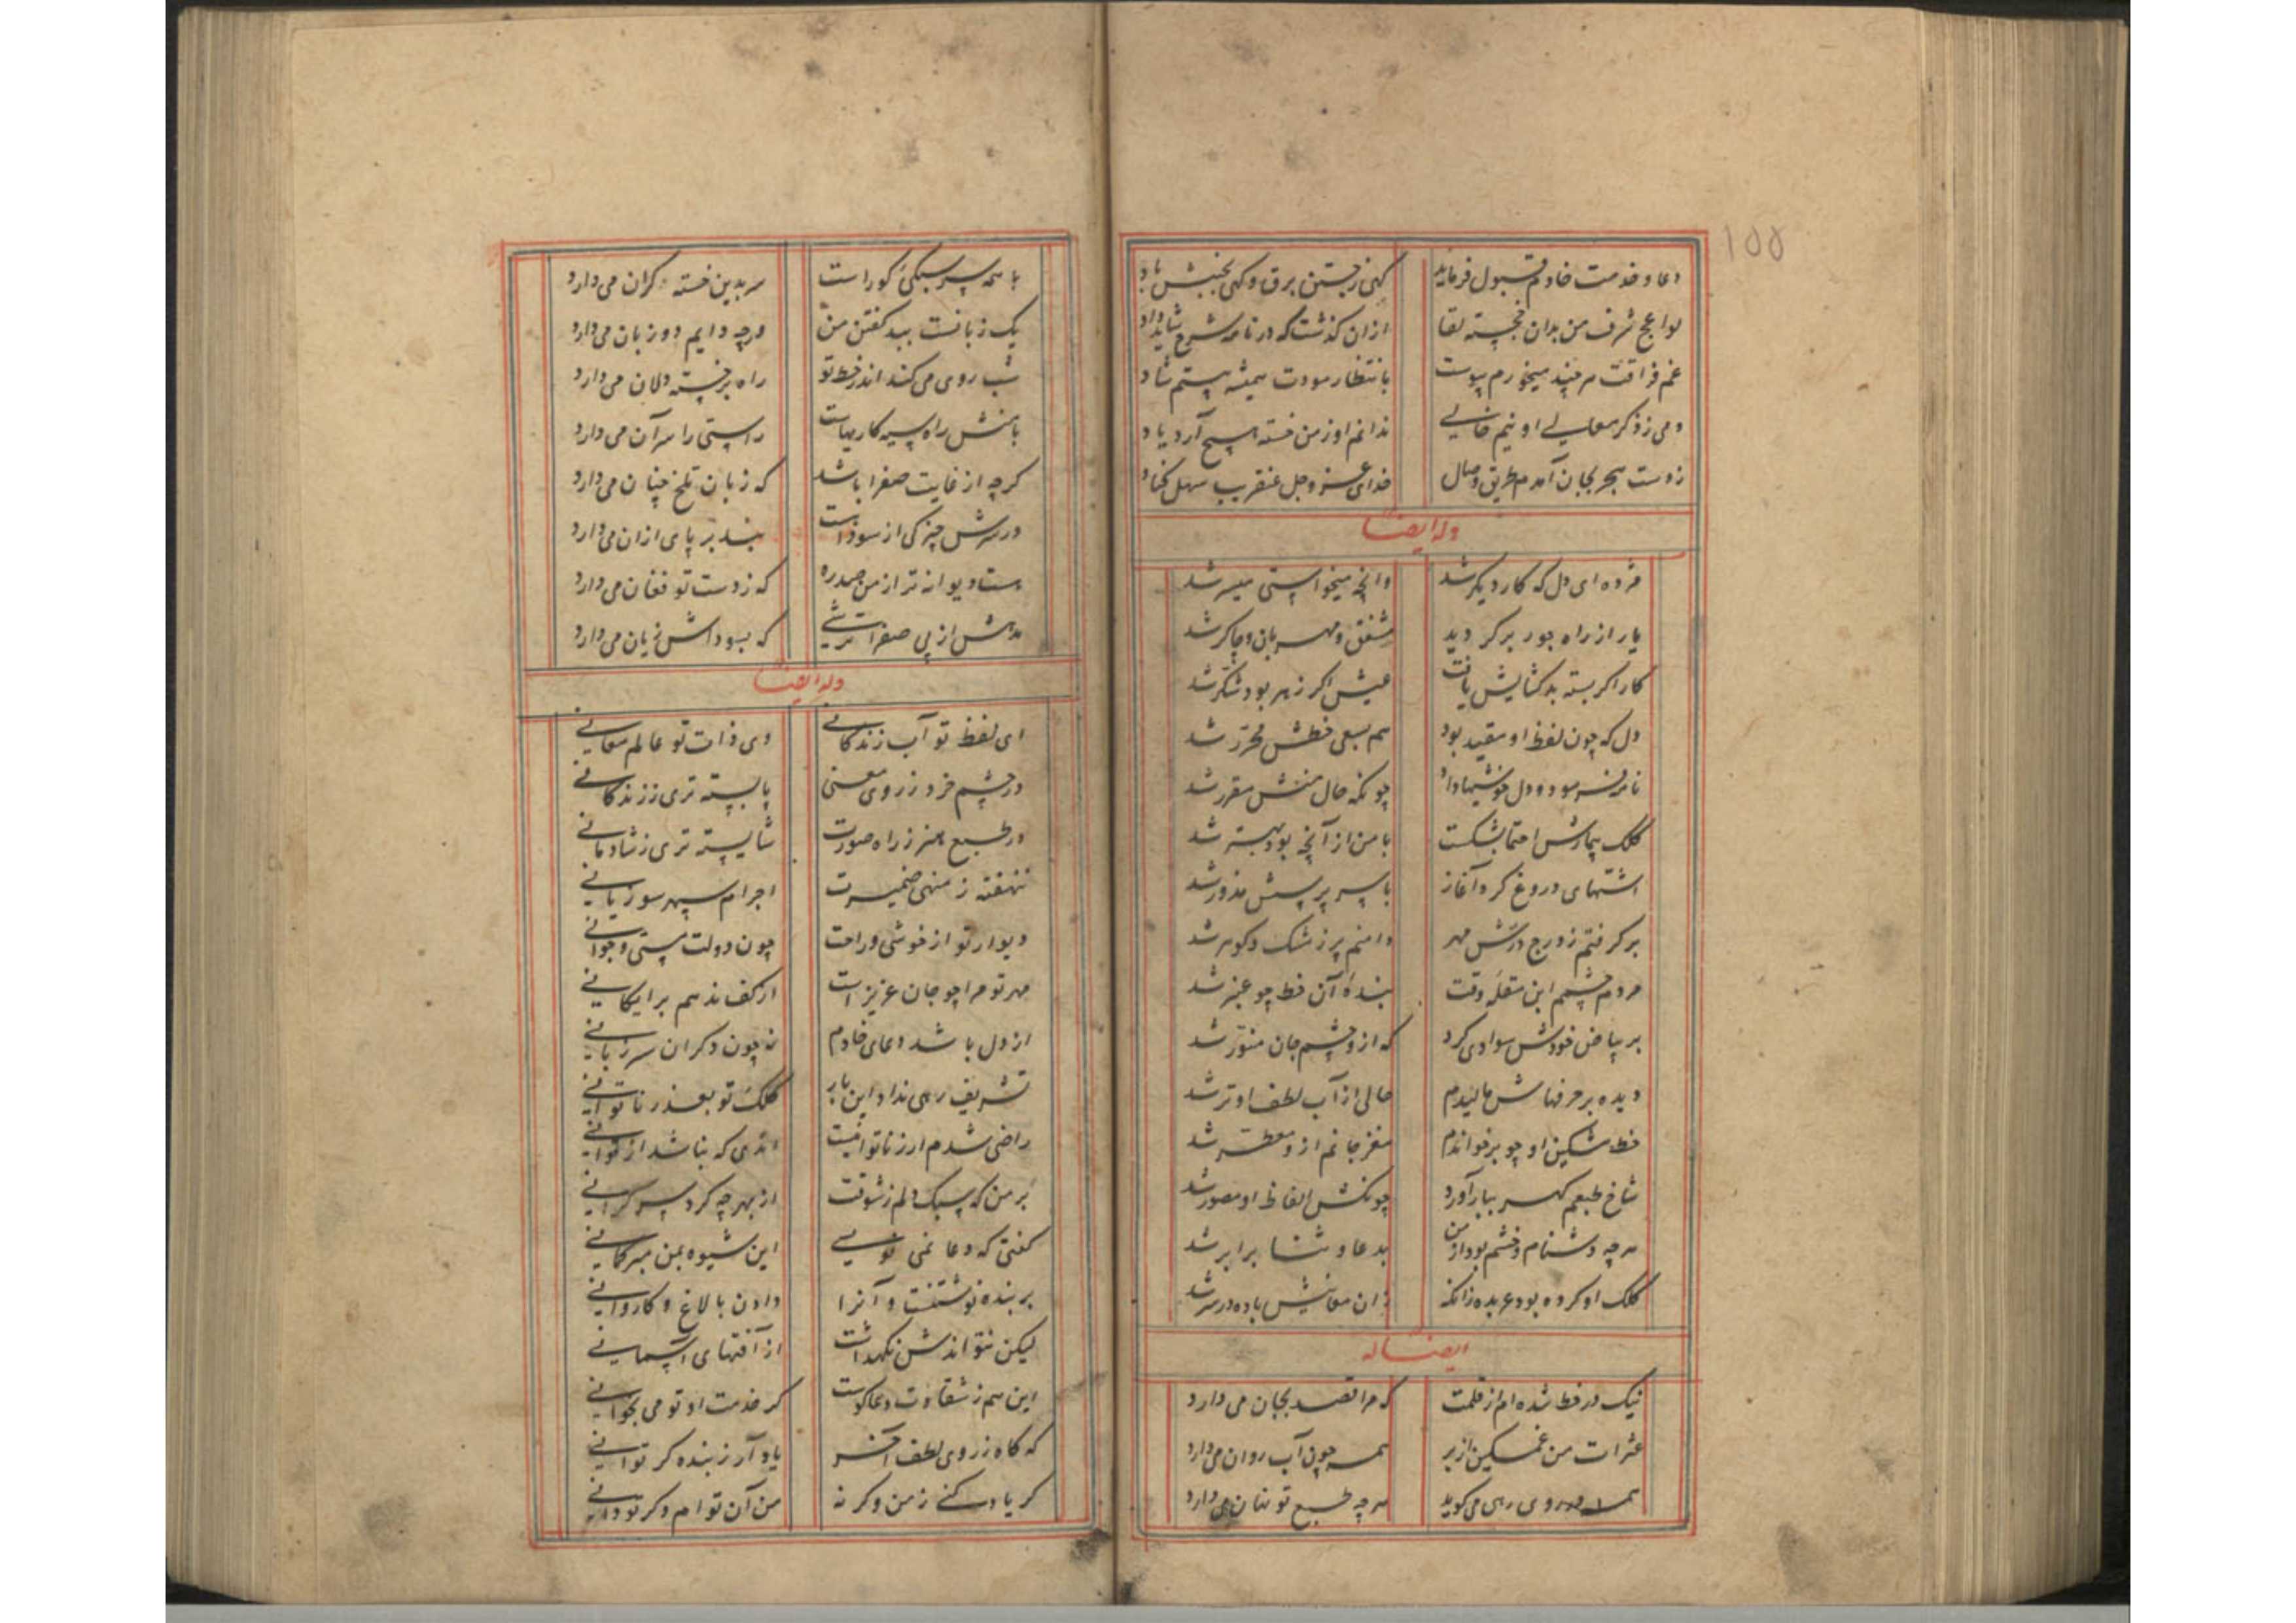 ۱۵۵
دعا و خدمت خادم قبول فرماید کهی زجستن برق و کهی بجنبش باد
لواعج شرف من بدان خجسته لقا ازان کذشت که در نامه شرح شاید داد
غم فراقت هر چند میخورم پیوست بانتظار مودت همیشه هستم شاد
دمی ز ذکر معالی او نیم خالی ندانم او ز من خسته هیچ آرد یاد
ز دست هجر بجان آمدم طریق وصال خدای عز و جل عنقریب سهل کناد
وله ایضا
مژده ای دل که کار دیکر شد وانچه میخواستی میسر شد
یار از راه جور برکردید مشفق و مهربان و چاکر شد
کار اکر بسته بد کشایش یافت عیش اکر زهر بود شکر شد
دل که چون لفظ او مقید بود هم بسعی خطش محرر شد
نامه فرمود و دل خوشیها داد چونکه حال منش مقرر شد
کلک بیمارش احتما بشکست با من از آنچه بود بهتر شد
اشتهای دروغ کرد آغاز با سر پرسش مزور شد
بر کرفتم ز درج درش مهر دامنم پر ز مشک و کوهر شد
مردم چشمم ابن مقلهٔ وقت بندهٔ آن خط چو عنبر شد
بر بیاض خودش سوادی کرد که ازو چشم جان منور شد
دیده بر حرفهاش مالیدم حالی از آب لطف او تر شد
خط مشکین او چو برخواندم مغز جانم ازو معطر شد
شاخ طبعم کهر ببار آورد چونکش الفاظ او مصور شد
هر چه دشنام و خشم بود از من بدعا و ثنا برابر شد
کلک او کرده بود عربده زانکه زان معانیش باده در سر شد
ایضا له
نیک در خط شده‌ام از قلمت که مرا قصد بجان می دارد
عثرات من غمکین از بر همه چون آب روان می دارد
همه در روی رهی می کوید هر چه طبع تو نهان می دارد
با همه سر سبکی کوراست سر بدین خسته کران می دارد
یک زبانست ببد کفتن من ورچه دایم دو زبان می دارد
شب روی می کند اندر خط تو راه بر خسته دلان می دارد
با منش راه سیه کاریهاست راستی را سر آن می دارد
کرچه از غایت صفرا باشد که زبان تلخ چنان می دارد
در سرش چیزکی از سوداست بند بر پای ازان می دارد
هست دیوانه تر از من صد ره که ز دست تو فغان می دارد
مدهش از پی صفرات ترشی که بسوداش زیان می دارد
وله ایضا
ای لفظ تو آب زندکانی وی ذات تو عالم معانی
در چشم خرد ز روی معنی بایسته تری ز زندکانی
در طبع هنر ز راه صورت شایسته تری ز شادمانی
ننهفته ز منهی ضمیرت اجرام سپهر سوزیانی
دیوار تو از خوشی و راحت چون دولت مستی و جوانی
مهر تو مرا چو جان عزیز است از کف ندهم برایکانی
از دل باشد دعای خادم نه چون دکران سر زبانی
تشریف رهی نداد این بار کلک تو بعذر ناتوانی
راضی شدم ار ز ناتوانیست اندی که نباشد از توانی
بر من که سبک دلم ز شوقت از بهر چه کرد سر کرانی
کفتی که دعا نمی نویسی این شیوه بمن مبر کمانی
بر بنده نوشتنست و آنرا دادن بالاغ و کاروانی
لیکن نتواندش نکهداشت از آفتهای آسمانی
این هم ز شقاوت دعاکوست کر خدمت او تو می نخوانی
که کاه ز روی لطف آخر یاد آر ز بنده کر توانی
کر یاد کنی ز من وکر نه من آن توام دکر تو دانی